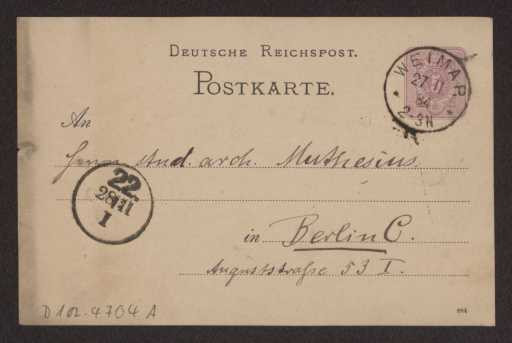 DEUTSCHE REICHSPOST.
POSTKARTE.
WEIMAR
27 11
84
2-3N
An
Herrn stud. arch. Muthesius.
22
28 11
I
in Berlin C.
Auguststraße 53 I.
D 102-4704 A